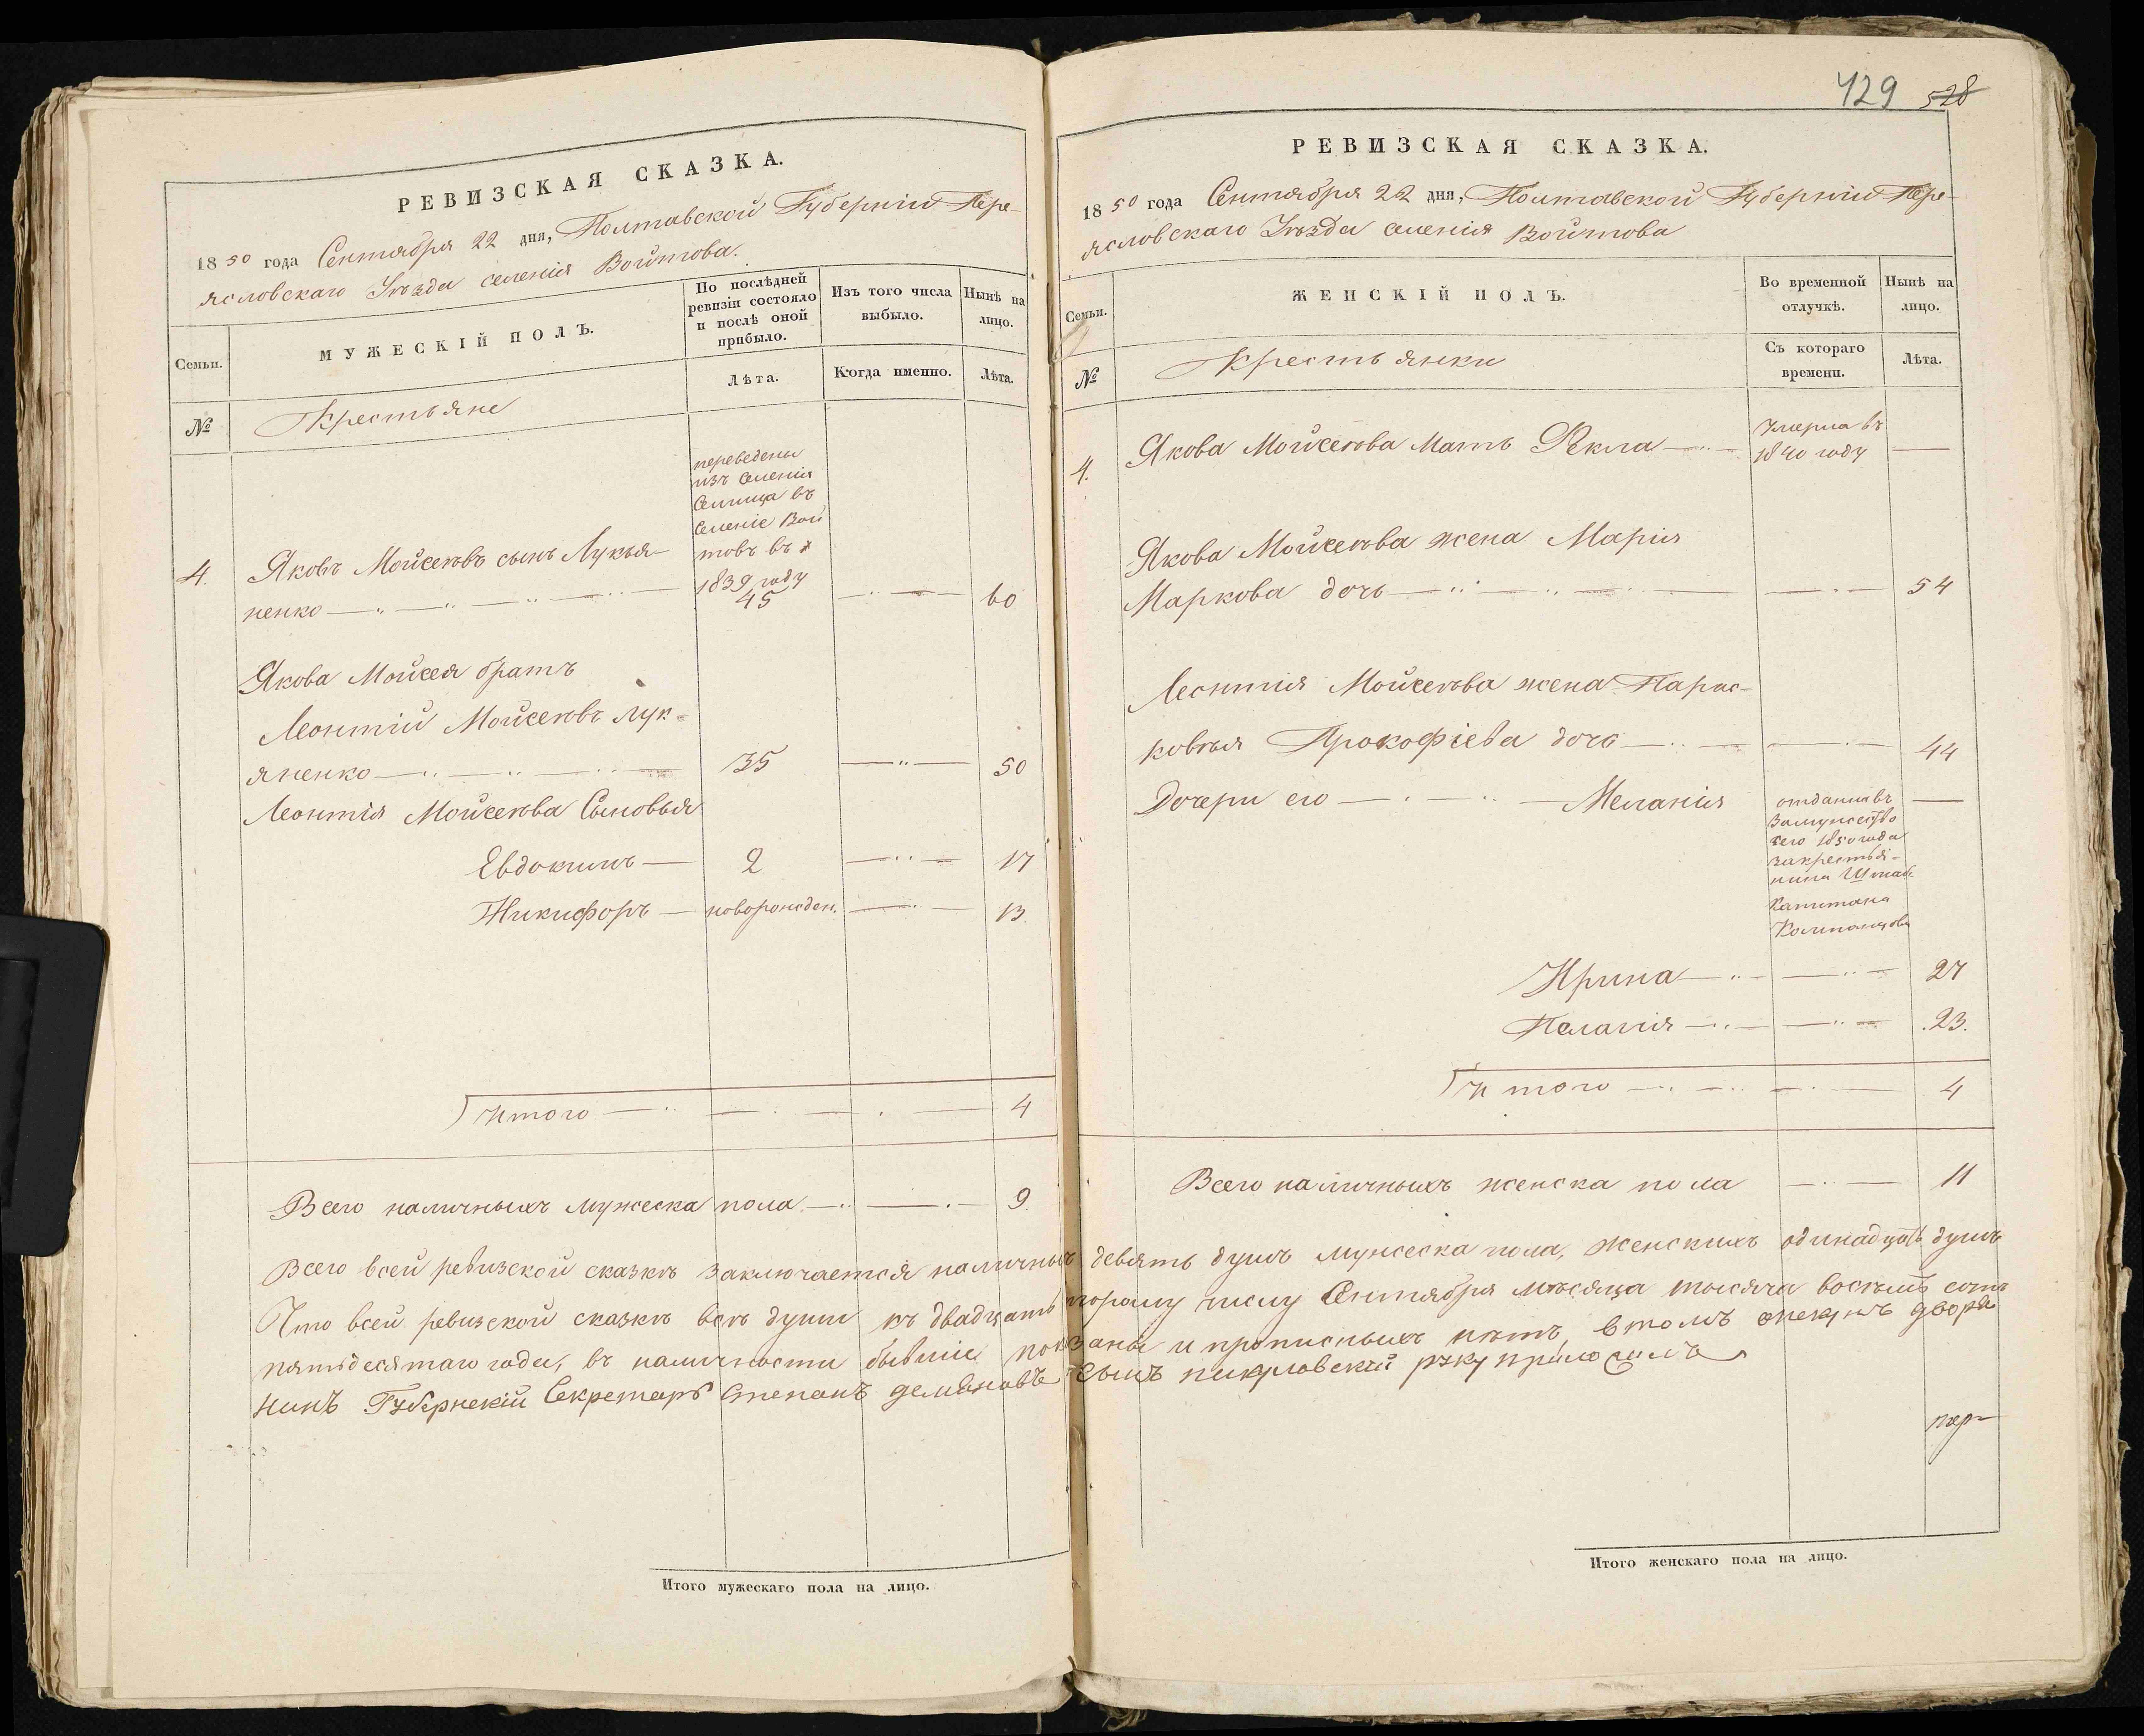 РЕВИЗСКАЯ СКАЗКА.
1850 года Сентября 22 дня, Полтавской Губерніи Пере-
ясловскаго Уѣзда селенія Войтова.
Семьи.
МУЖЕСКІЙ ПОЛЪ.
По послѣдней
ревизіи состояло
и послѣ оной
прибыло.
Изъ того числа
выбыло.
Нынѣ на
лицо.
Лѣта.
Когда именно.
Лѣта.
№
Крестьяне
переведены
изъ селенія
Селища въ
селеніе Вой
товъ въ
1839 году
4. Яковъ Мойсеевъ сынъ Лукья-
ненко 45 60
Якова Мойсея братъ
Леонтій Мойсеевъ Лук-
яненко 35 50
Леонтія Мойсеева Сыновья
Евдокимъ 2 17
Никифоръ новорожден. 13.
Итого 4
Всего наличныхъ мужеска пола 9.
429 528
РЕВИЗСКАЯ СКАЗКА.
1850 года Сентября 22 дня, Полтавской Губерніи Пере-
ясловскаго Уѣзда селенія Войтова
Семьи.
ЖЕНСКІЙ ПОЛЪ.
Во временной
отлучкѣ.
Нынѣ на
лицо.
№
Крестьянки
Съ котораго
времени.
Лѣта.
4. Якова Мойсеева мать Фекла
Умерла въ
1840 году
Якова Мойсеева жена Марія
Маркова дочь 54
Леонтія Мойсеева жена Парас-
ковья Прокофіева дочь 44
Дочери его Меланія
отданна въ
замужество
сего 1850 года
за крестья-
нина Штабс
Капитана
Ирина 27
Пелагія 23.
Итого 4
Всего наличныхъ женска пола 11
Всего всей ревизской сказкѣ заключается наличныхъ девять душъ мужеска пола, женскихъ одинадцать душъ
Что всей ревизской сказкѣ всѣ души къ двадцать второму числу Сентября мѣсяца тысяча восемь сотъ
пятьдесятаго года, въ наличности бывшіе показаны и прописныхъ нѣтъ, в томъ опекунъ дворя
нинъ Губернскій Секретарь Степанъ Демяновъ сынъ руку приложилъ
Итого мужескаго пола на лицо.
Итого женскаго пола на лицо.